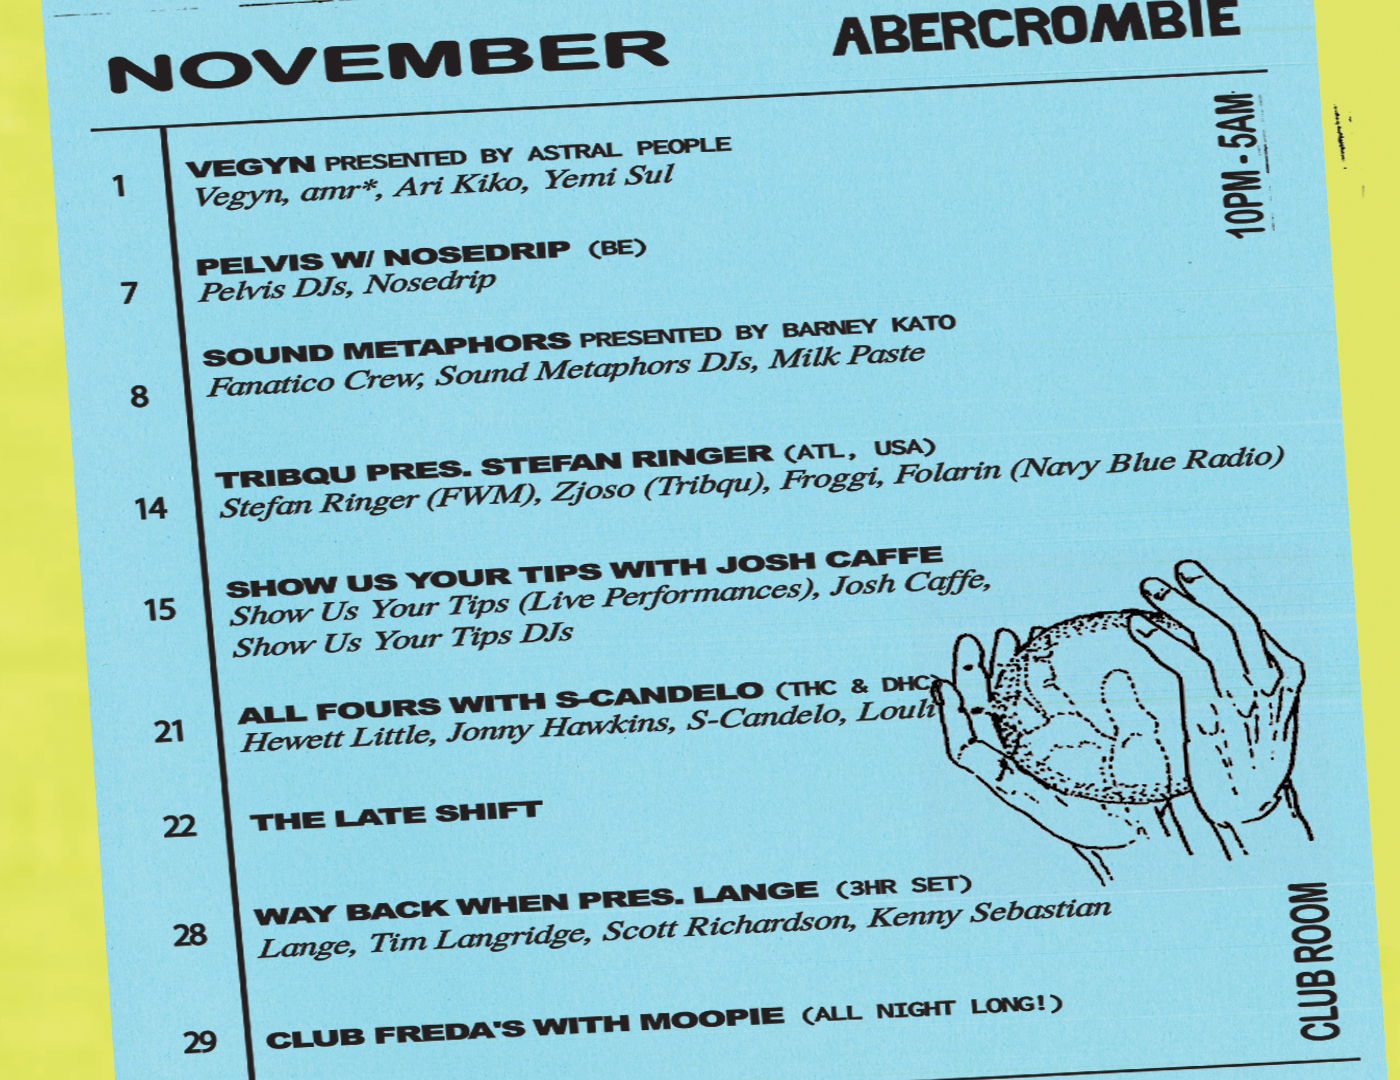 NOVEMBER
ABERCROMBIE
10PM - 5AM
1
VEGYN PRESENTED BY ASTRAL PEOPLE
Vegyn, amr*, Ari Kiko, Yemi Sul
7
PELVIS W/ NOSEDRIP (BE)
Pelvis DJs, Nosedrip
8
SOUND METAPHORS PRESENTED BY BARNEY KATO
Fanatico Crew, Sound Metaphors DJs, Milk Paste
14
TRIBQU PRES. STEFAN RINGER (ATL, USA)
Stefan Ringer (FWM), Zjoso (Tribqu), Froggi, Folarin (Navy Blue Radio)
15
SHOW US YOUR TIPS WITH JOSH CAFFE
Show Us Your Tips (Live Performances), Josh Caffe,
Show Us Your Tips DJs
21
ALL FOURS WITH S-CANDELO (THC & DHC)
Hewett Little, Jonny Hawkins, S-Candelo, Louli
22
THE LATE SHIFT
28
WAY BACK WHEN PRES. LANGE (3HR SET)
Lange, Tim Langridge, Scott Richardson, Kenny Sebastian
29
CLUB FREDA'S WITH MOOPIE (ALL NIGHT LONG!)
CLUB ROOM